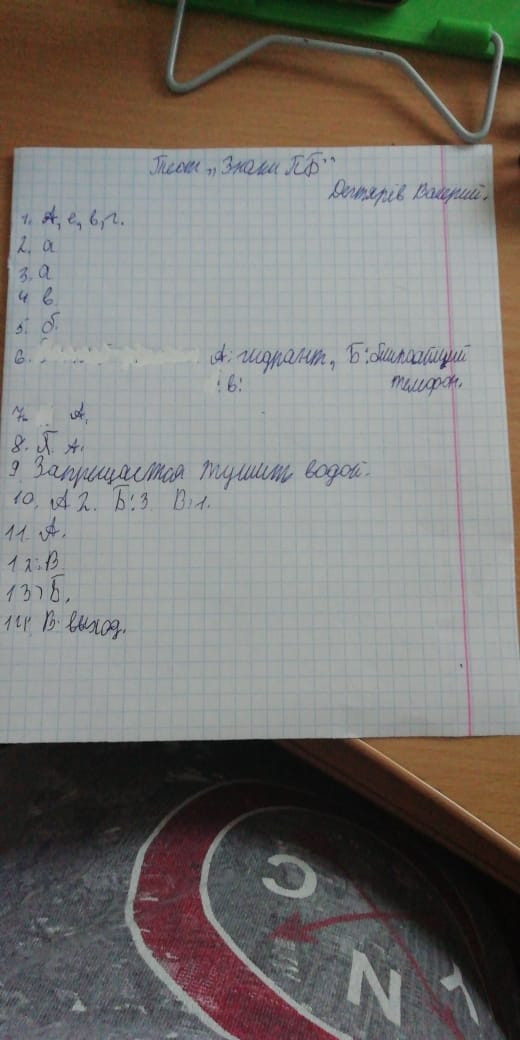 Тест „Знаки ПБ"
Дегтярів Валерий.
1. А, е, в, г.
2. а
3. а
4 в
5. б.
6. А: гидрант, Б:
в: телефон.
7. А.
8. А.
9 Запрещается тушить водой.
10. А 2. Б: 3 В: 1.
11. А.
12. В
13) Б.
14. В: выход.
C
N